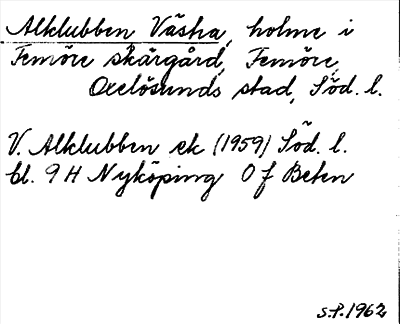 Alklubben Västra, holme i
Femöre skärgård, Femöre,
Oxelösunds stad, Söd. l.
V. Alklubben ek (1959) Söd. l.
bl. 9 H Nyköping 0 f Beten
s.P. 1962